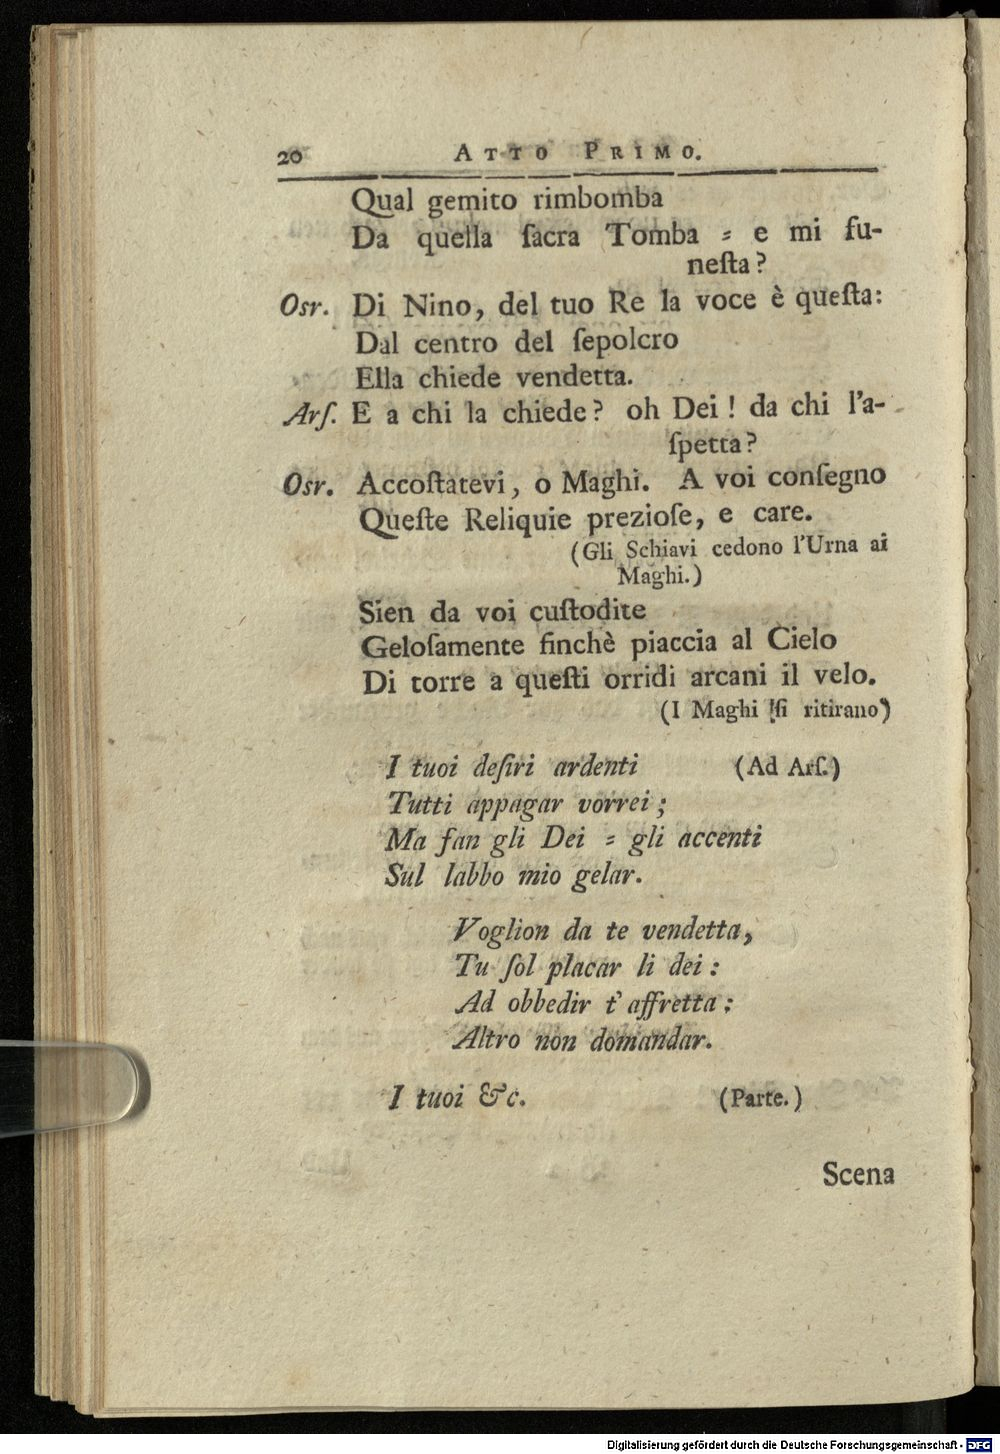 20 ATTO PRIMO.
Qual gemito rimbomba
Da quella ſacra Tomba ⸗ e mi fu-
neſta?
Osr. Di Nino, del tuo Re la voce è queſta:
Dal centro del ſepolcro
Ella chiede vendetta.
Arſ. E a chi la chiede? oh Dei! da chi l'a-
ſpetta?
Osr. Accoſtatevi, o Maghi. A voi conſegno
Queſte Reliquie prezioſe, e care.
(Gli Schiavi cedono l'Urna ai
Maghi.)
Sien da voi cuſtodite
Geloſamente finchè piaccia al Cielo
Di torre a queſti orridi arcani il velo.
(I Maghi ſi ritirano)
I tuoi deſiri ardenti (Ad Arſ.)
Tutti appagar vorrei;
Ma fan gli Dei ⸗ gli accenti
Sul labbo mio gelar.
Voglion da te vendetta,
Tu ſol placar li dei:
Ad obbedir t' affretta:
Altro non domandar.
I tuoi &c. (Parte.)
Scena
Digitalisierung gefördert durch die Deutsche Forschungsgemeinschaft - DFG